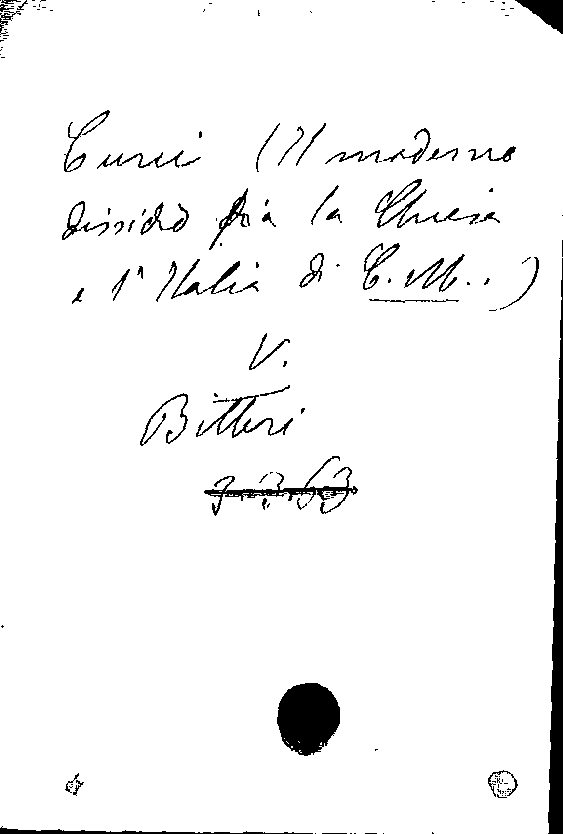 Curci (Il moderno
dissidio fra la Chiesa
e l'Italia di C. M..)
V.
Bitteri
9.3.63